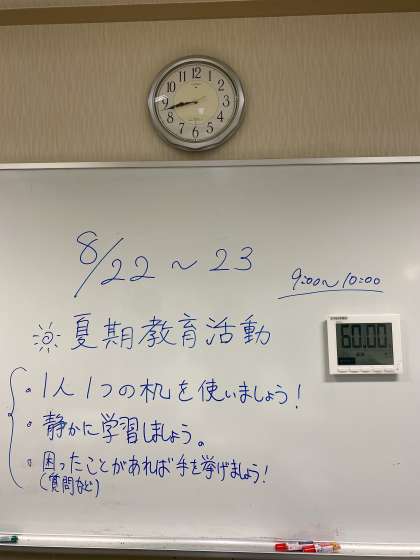 12
1
2
3
4
5
6
7
8
9
10
11
8/22 ~ 23
9:00~10:00
60.00
夏期教育活動
・1人1つの机を使いましょう!
・静かに学習しましょう。
・困ったことがあれば手を挙げましょう!
(質問など)